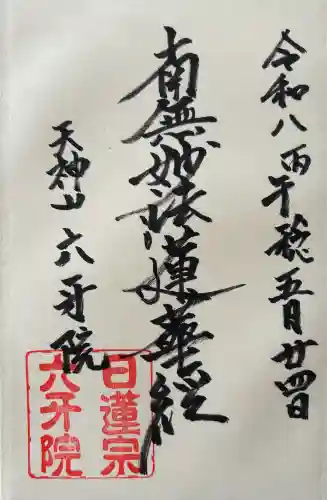 令和八丙午稔五月廿四日
南無妙法蓮華経
天神山六牙院
日蓮宗
六牙院